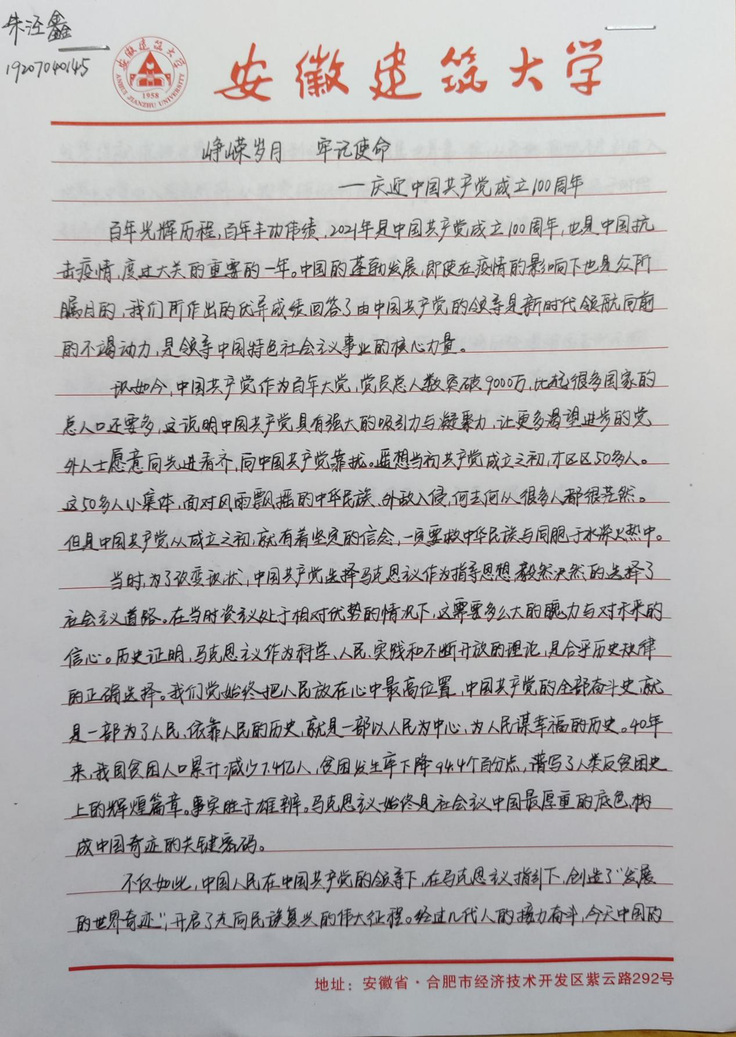 朱泾鑫
19207040145
安徽建筑大学
ANHUI JIANZHU UNIVERSITY
1958
安徽建筑大学
峥嵘岁月 牢记使命
——庆迎中国共产党成立100周年
百年光辉历程,百年丰功伟绩,2021年是中国共产党成立100周年,也是中国抗
击疫情,度过大关的重要的一年。中国的蓬勃发展,即使在疫情的影响下也是众所
瞩目的,我们所作出的优异成绩回答了由中国共产党的领导是新时代领航向前
的不竭动力,是领导中国特色社会主义事业的核心力量。
现如今,中国共产党作为百年大党,党员总人数突破9000万,比起很多国家的
总人口还要多,这说明中国共产党具有强大的吸引力与凝聚力,让更多渴望进步的党
外人士愿意向先进看齐,向中国共产党靠拢。遥想当初共产党成立之初,才区区50多人。
这50多人小集体,面对风雨飘摇的中华民族、外敌入侵,何去何从很多人都很茫然。
但是中国共产党从成立之初,就有着坚定的信念,一定要救中华民族与同胞于水深火热中。
当时,为了改变现状,中国共产党选择马克思主义作为指导思想,毅然决然的选择了
社会主义道路。在当时资主义处于相对优势的情况下,这需要多么大的魄力与对未来的
信心。历史证明,马克思主义作为科学、人民、实践和不断开放的理论,是合乎历史规律
的正确选择。我们党始终把人民放在心中最高位置,中国共产党的全部奋斗史,就
是一部为了人民,依靠人民的历史,就是一部以人民为中心,为人民谋幸福的历史。40年
来,我国贫困人口累计减少7.4亿人,贫困发生率下降94.4个百分点,谱写了人类反贫困史
上的辉煌篇章。事实胜于雄辨。马克思主义始终是社会主义中国最厚重的底色,构
成中国奇迹的关键密码。
不仅如此,中国人民在中国共产党的领导下,在马克思主义指引下,创造了“发展
的世界奇迹”,开启了走向民族复兴的伟大征程。经过几代人的接力奋斗,今天中国的
地址:安徽省·合肥市经济技术开发区紫云路292号